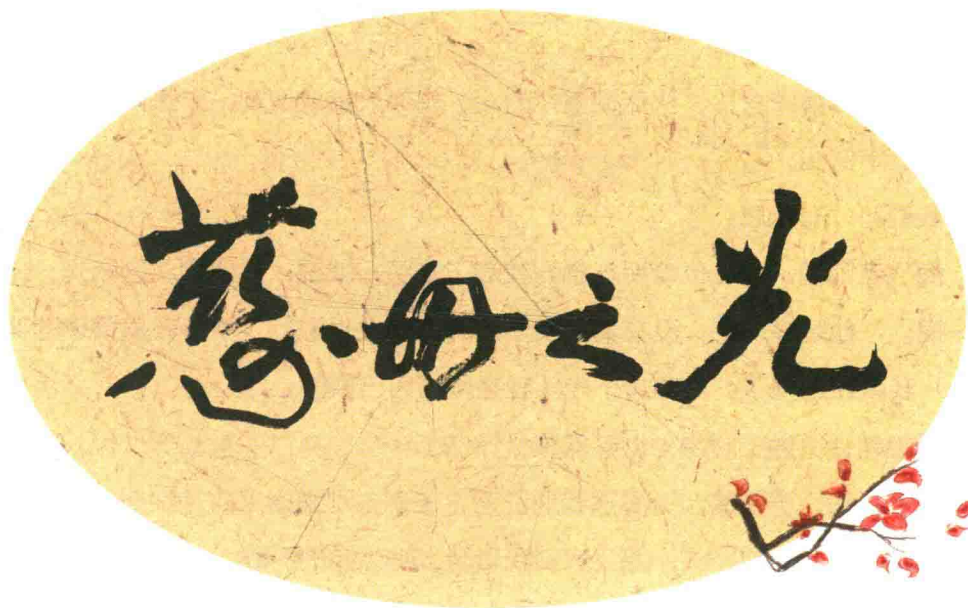 慈母之光